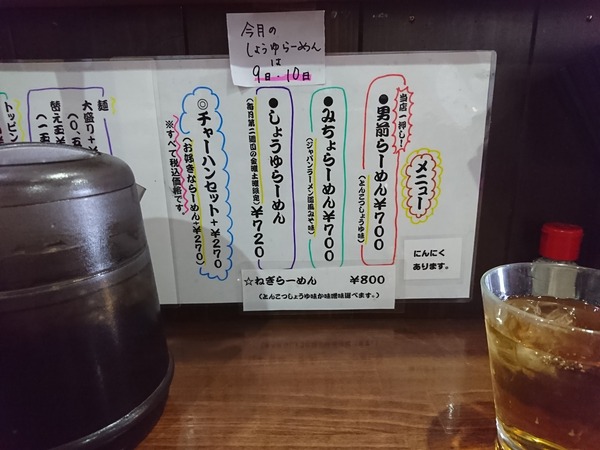 今月の
しょうゆらーめん
は
9日・10日
メニュー
当店一押し!
●男前らーめん¥700
(とんこつしょうゆ味)
●みちょらーめん¥700
(ジャパンラーメン風味みそ味)
●しょうゆらーめん¥720
(毎月第二週目の金曜土曜限定)
◎チャーハンセット+¥270
(お好きならーめん+¥270)
※すべて税込価格です。
麺
大盛り+
替え玉
トッピン
にんにく
あります。
☆ねぎらーめん ¥800
(とんこつしょうゆ味か味噌味選べます。)